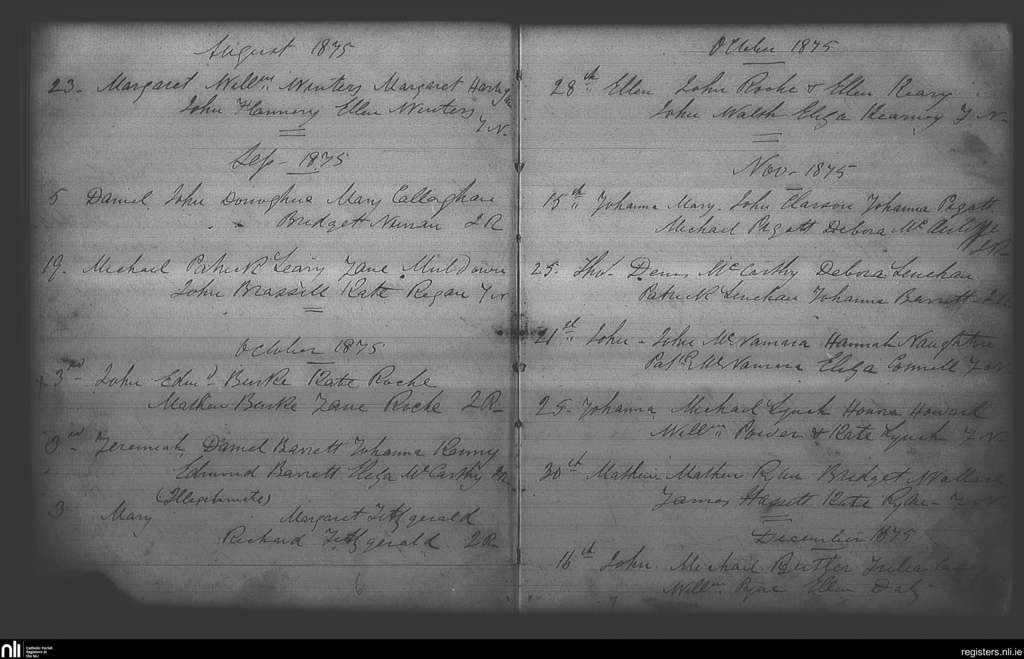 August 1875
23. Margaret Willm Winters Margaret
John Flannory Ellen Winters
J N.
Sep - 1875
5 Daniel John Donoghue Mary Callaghan
Bridget 2 R
19. Michael Patrick Leary Jane Muldown
John Brassill Kate Regan
October 1875
3rd - John Edmd Burke Kate Roche
Mathew Burke Jane Roche 2 R
3rd - Jeremiah Daniel Barrett Johanna Kenny
Edmund Barrett Eliza McCarthy
(Illegitimite)
3 Mary Margaret Fitzgerald
Richard Fitzgerald 2 R
6
October 1875
28th Ellen John Roche & Ellen Keary
John Walsh Eliza Kearney J N
Nov - 1875
15th Johanna Mary. John Johanna Pigott
Michael Pigott Debora
25. Thos. Denis McCarthy Debora Lenehan
Patrick Lenehan Johanna Barrett
21st John - John McNamara Hannah Naughton
Patk McNamara Eliza Connell
25 - Johanna Michael Lynch Honora Howard
Willm Power & Kate Lynch J N
30th Mathew Mathew Ryan Bridget Wallace
James Hassett Kate Ryan -
December 1875
16th John. Michael Butler Julia
Willm Ryan Ellen Daly
nli
Catholic Parish
Registers at
the NLI
registers.nli.ie